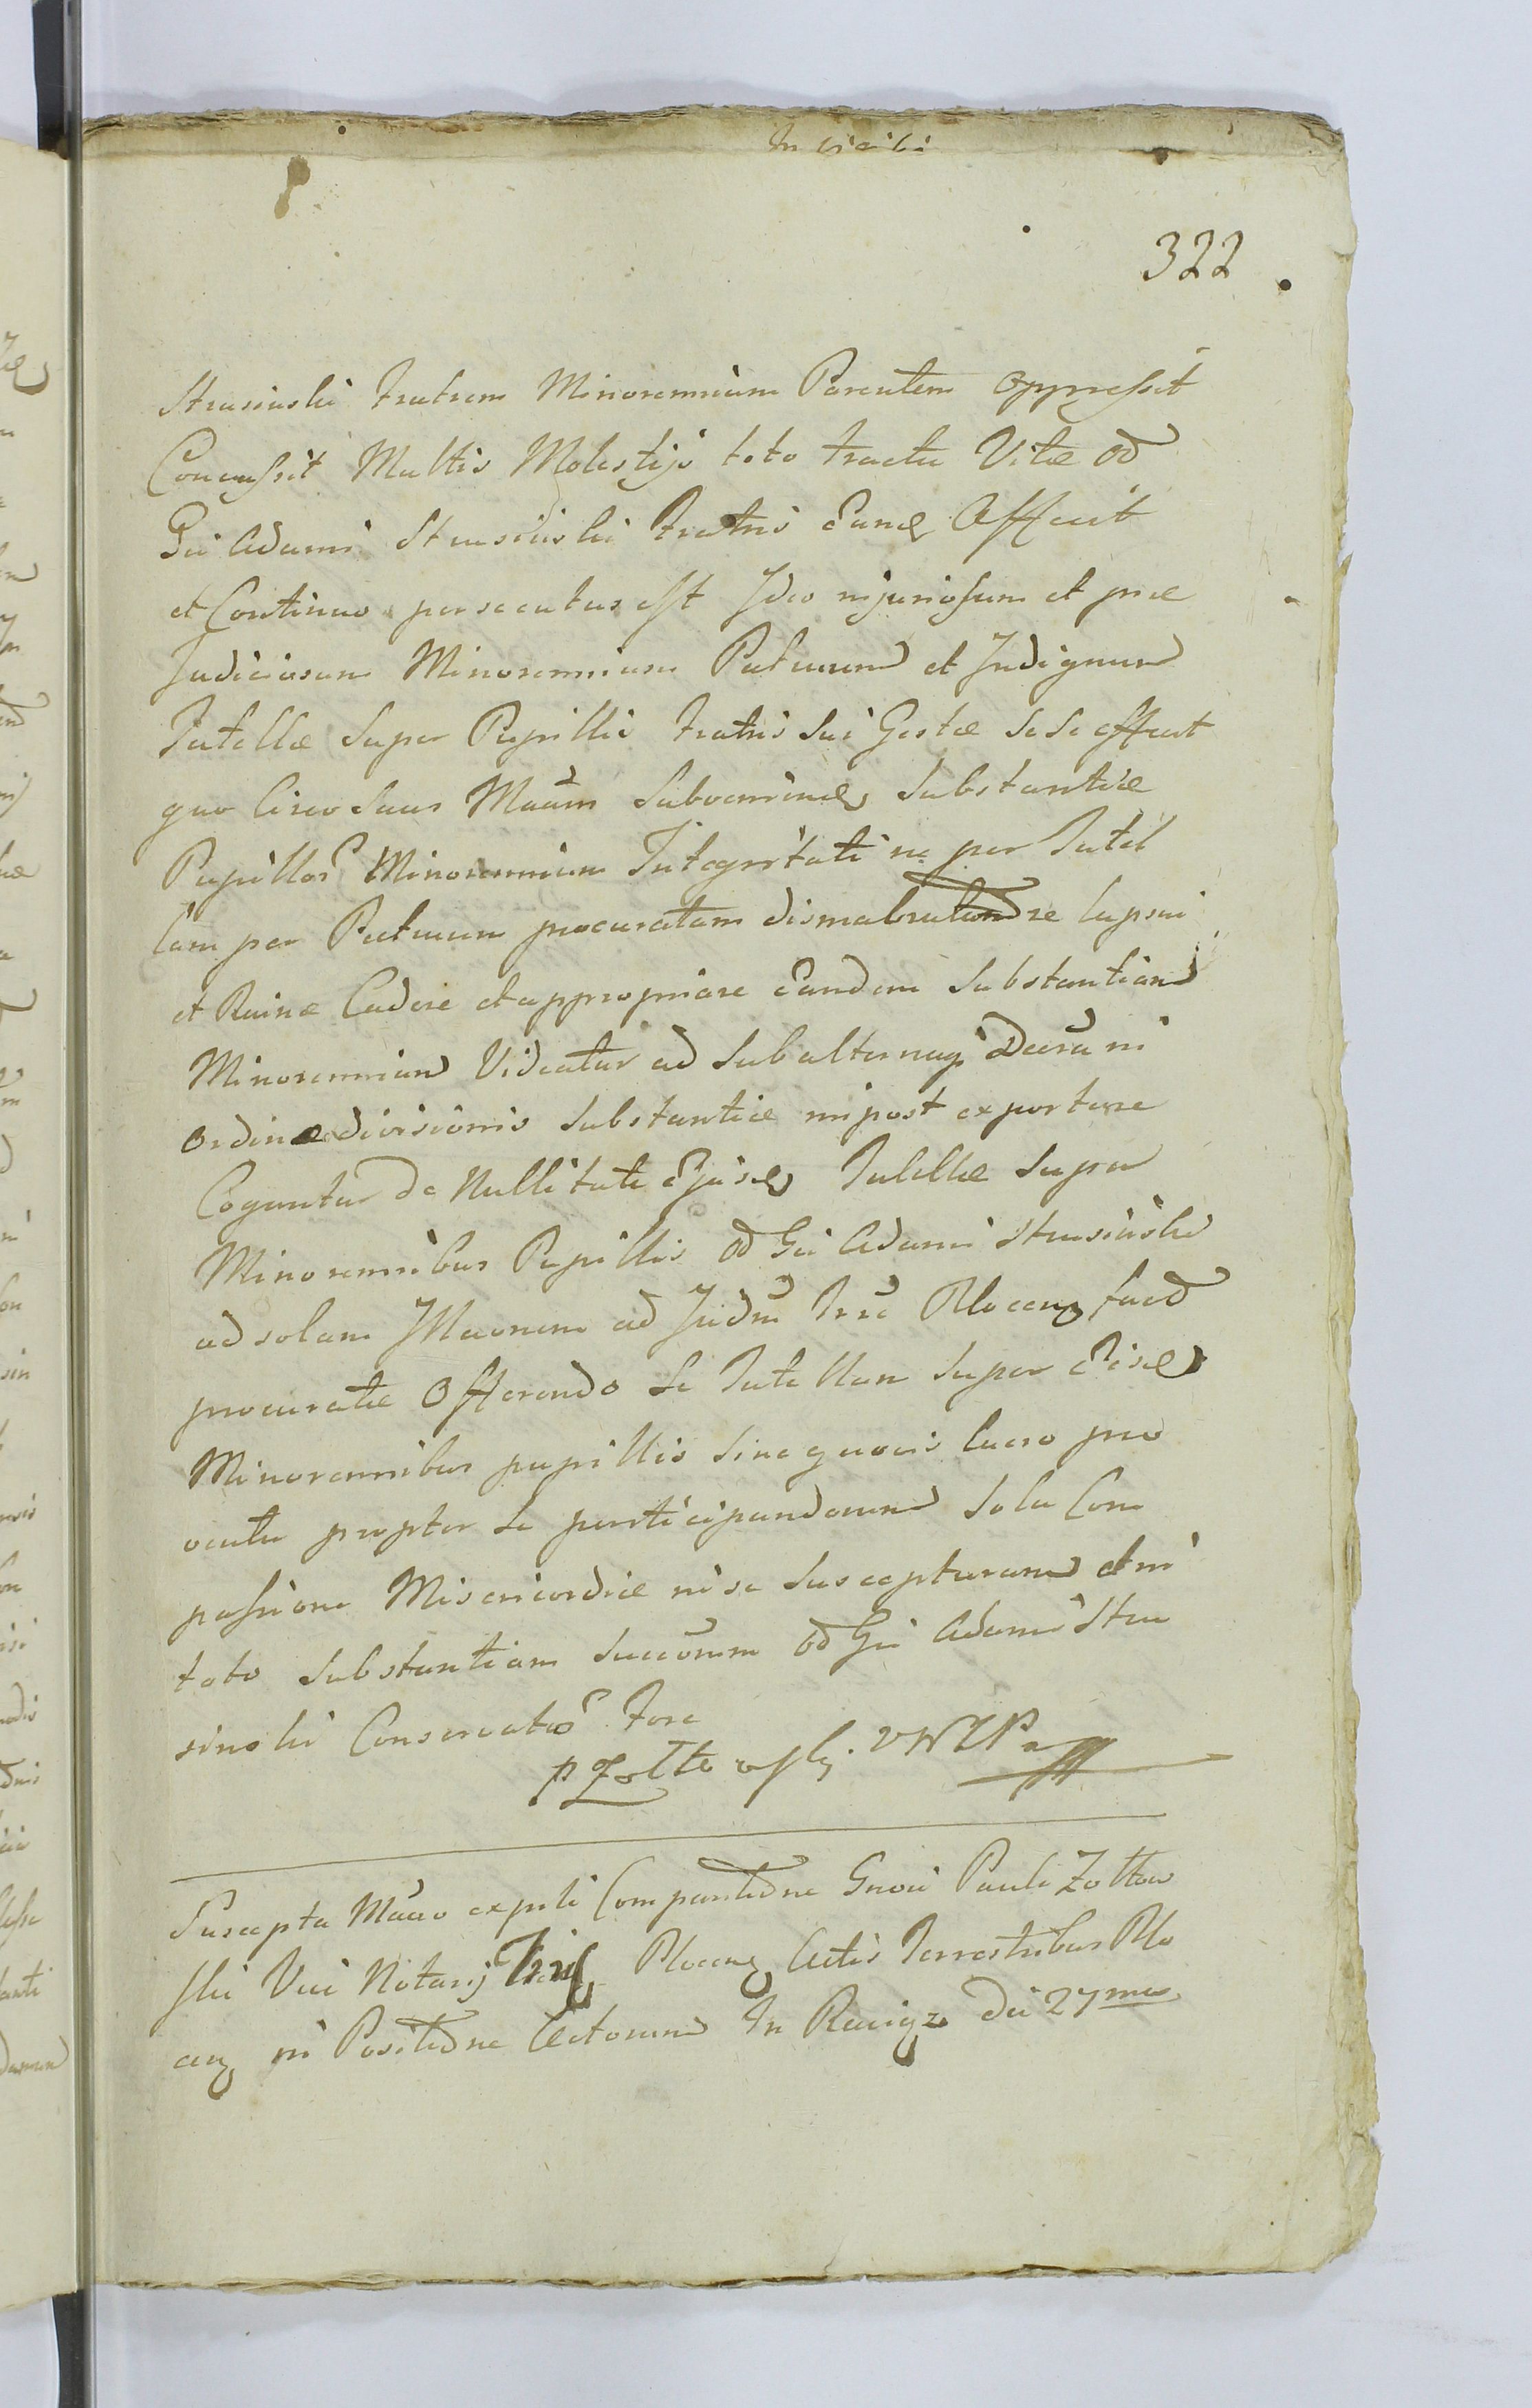 322
Strusinski Fratrem Minorennium Parentem oppressit
Concussit Multis Molestijs toto tractu Vitæ od
Gsi Adami Strusinski Fratris Eund Affecit
et Continuo persecutus est Ideo injuriosum et præ
Judiciosum Minorennium Patruum et Indignum
Tutellæ Super Pupillis Fratris Sui Gestæ sese effecit
quo Circo Suus Maūm Subveniend Substantiæ
Pupillor Minorennium Integritati ne per Tutel
lam per Patruum procuratam lapsui
et Ruinæ Cadere et appropriare Eandem Substantiam
Minorennium Videatur ad Subalternas in
ordine divisionis Substantiæ inpost
Cogantur de Nullitate Ejusd Tutellæ Super
Minorennibus Pupillis od Gsi Adami Strusinski
ad solam ad Judm Trre Plocen facd
procuratæ Offerendo Se Tutellam Super Eisd
Minorennibus pupillis Sine quovis lucro pro
ventu propter Se participandorum Sola Com
passione Misericordiæ in se Suscepturum et in
toto Substantiam od Gsi Adami Stru
sinski Conservatur Fore
P Zolto wski VNTP
Suscepta expsti Gnosi Pauli Zoltow
ski Vice Notarij Plocen Actis Terrestribus Plo
cen in Actorum In Raciąz Die 27ma